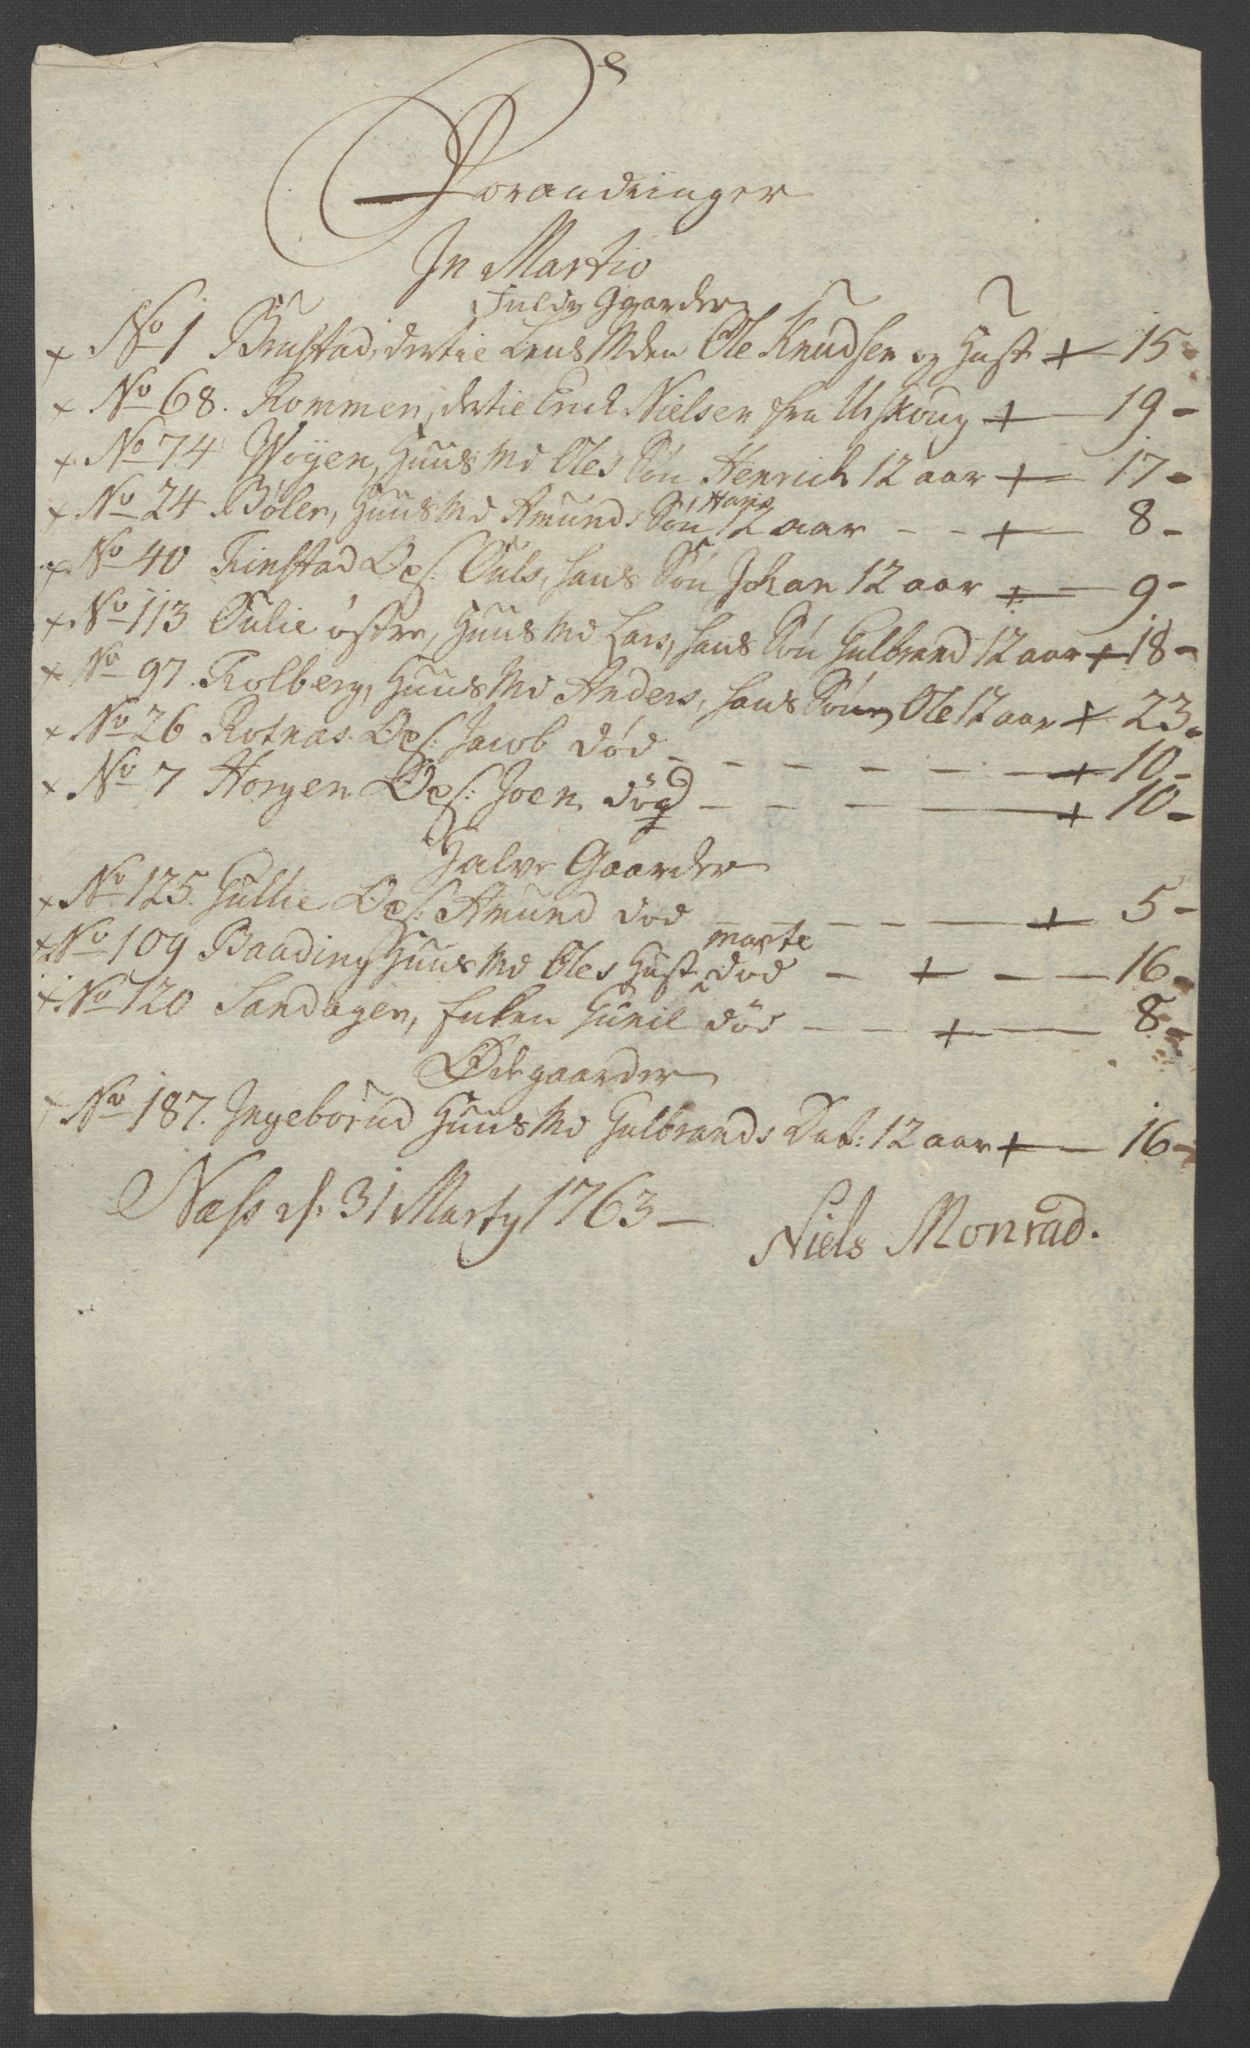 Forandringer
In Martio
Fulde Gaarder
x No 1 Brustad, dertil Lensmden Ole Knudsen og Hust + 15 -
x No 68. Rommen, dertil Erich Nielsen fra Urskoug + 19 -
x No 74 Woyen, Huusmd Oles Søn Henrich 12 aar + 17 -
x No 24 Bøler, Huusmd Amunds Søn Hans 12 aar - - + 8 -
x No 40 Finstad Ops: Ouls, hans Søn Johan 12 aar + 9 -
x No 113 Aulie østre, Huusmd Lars, hans Søn Gulbrand 12 aar + 18 -
x No 97. Folberg, Huusmd Anders, hans Søn Ole 12 aar + 23 -
x No 26 Rotnas Ops: Jacob død - - - - - - + 10 -
x No 7 Horgen Ops: Joen død - - - + 10 -
Halve Gaarder
x No 125. Hullie Ops: Amund død - - - - - + 5 -
x No 109 Baading Huusmd Oles Hust marte død - + - - 16 -
x No 120 Sandagen, Enken Gunil død - - + - 8 -
Ødegaarder
x No 187. Ingeborud Huusmd Gulbrands Dat: 12 aar + - 16 -
Næss d: 31 Marty 1763 -
Niels Monrad.